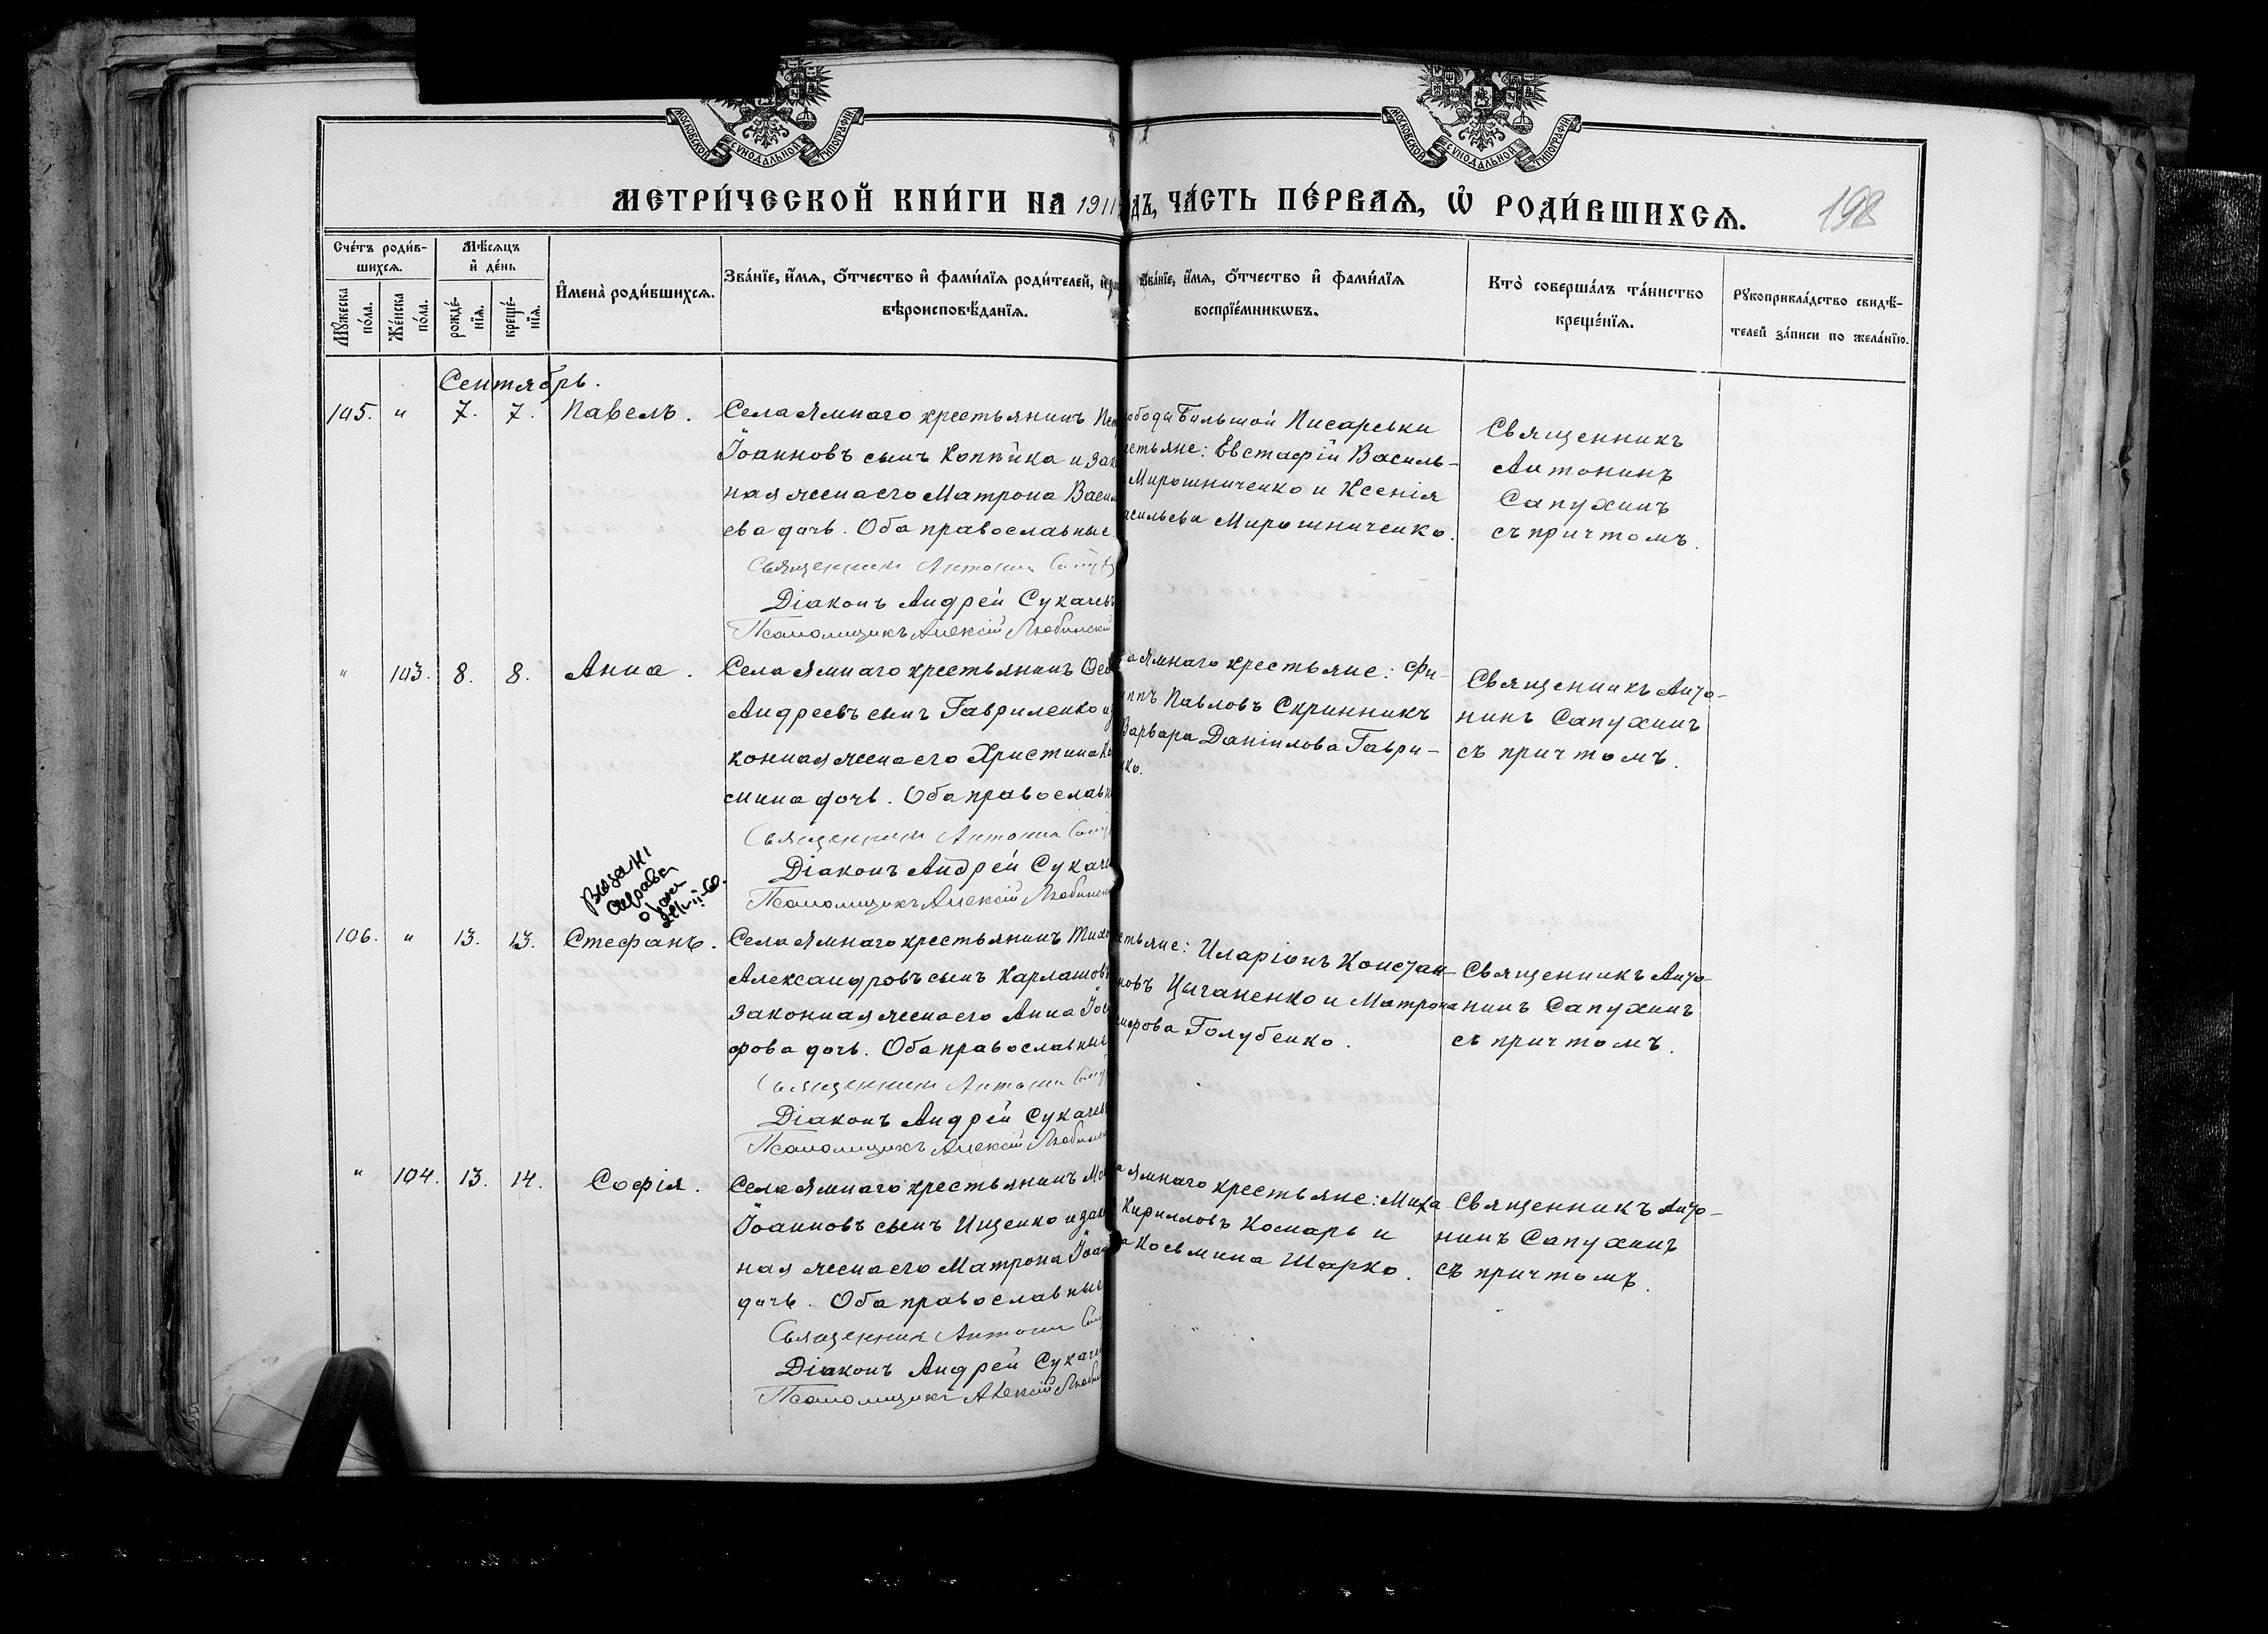 МОСКОВСКОЙ СѴНОДАЛЬНОЙ ТИПОГРАФІИ
МОСКОВСКОЙ СѴНОДАЛЬНОЙ ТИПОГРАФІИ
МЕТРИ́ЧЕСКОЙ КНИ́ГИ НА 1911 ДЪ, ЧА́СТЬ ПЕ́РВАѦ, Ѡ РОДИ́ВШИХСѦ.
198
Сче́тъ роди́вшихсѧ.
Мꙋ́жеска по́ла.
Же́нска по́ла.
Мѣ́сѧцъ и҆ де́нь
рожде́нїѧ.
креще́нїѧ.
И҆мена̀ роди́вшихсѧ.
Зва́нїе, и҆́мѧ, ѻ҆́тчество и҆ фами́лїѧ роди́телей,
вѣроисповѣ́данїѧ.
Зва́нїе, и҆́мѧ, ѻ҆́тчество и҆ фами́лїѧ
воспрїе́мникѡвъ.
Кто̀ соверша́лъ та́инство
креще́нїѧ.
Рꙋкоприкла́дство свидѣ́-
телей за́писи по жела́нїю.
Сентябрь.
105. " 7. 7. Павелъ.
Села Ямнаго крестьянинъ Пет
Іоанновъ сынъ Копѣйка и зак
ная жена его Матрона Васил
ева дочь. Оба православные
Священник Антонин Сапух
Діаконъ Андрей Сукачевъ
Псаломщикъ Алексій Любинскій
ободы Большой Писарьки
естьяне: Евстафій Василь-
Мирошниченко и Ксенія
асильева Мирошниченко.
Священникъ
Антонинъ
Сапухинъ
съ причтомъ.
" 103. 8. 8. Анна.
Села Ямнаго крестьянинъ
Андреевъ сынъ Гавриленко и
конная жена его Христина
смина дочь. Оба православн
Священник Антонин Сапу
Діаконъ Андрей Сукаче
Псаломщикъ Алексій Любинск
а Ямнаго крестьяне: Фи-
ппъ Павловъ Скринникъ
Варвара Даніилова Гаври-
ко.
Священникъ Анто-
нинъ Сапухинъ
съ причтомъ.
106. " 13. 13. Стефанъ.
Села Ямнаго крестьянинъ Тихо
Александровъ сынъ Карлашовъ
законная жена его Анна Іос
фова дочь. Оба православные
Священник Антонин Сапу
Діаконъ Андрей Сукачев
Псаломщикъ Алексій Любинск
стьяне: Иларіонъ Констан-
новъ Цыганенко и Матрона
сифова Голубенко.
Священникъ Анто-
нинъ Сапухинъ
съ причтомъ.
" 104. 13. 14. Софія.
Села Ямнаго крестьянинъ
Іоанновъ сынъ Ищенко и зак
ная жена его Матрона Іоан
дочь. Оба православные
Священник Антонин
Діаконъ Андрей Сукаче
Псаломщикъ Алексій Любин
а Ямнаго крестьяне: Миха
Кирилловъ Комарь и
Косьмина Шарко.
Священникъ Анто-
нинъ Сапухинъ
съ причтомъ.